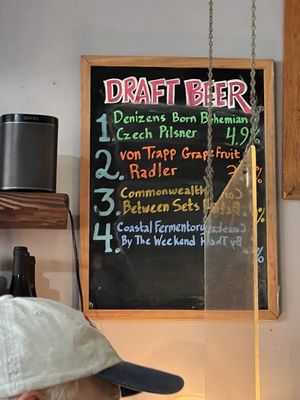 DRAFT BEER
1. Denizens Born Bohemian
Czech Pilsner 4.9%
2. von Trapp Grapefruit
Radler
3. Commonwealth
Between Sets
4. Coastal Fermentory
By The Weekend
SONOS